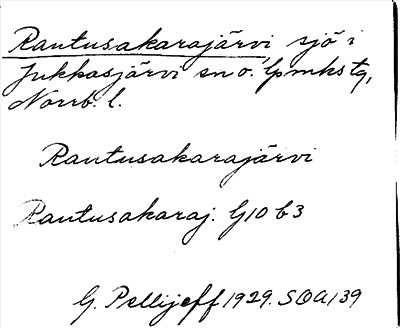 Rautusakarajärvi sjö i
Jukkasjärvi sn o. lpmks tg,
Norrb. l.
Rautusakarajärvi
Rautusakaraj. G10 b3
G. Pellijeff 1929. SOA 139